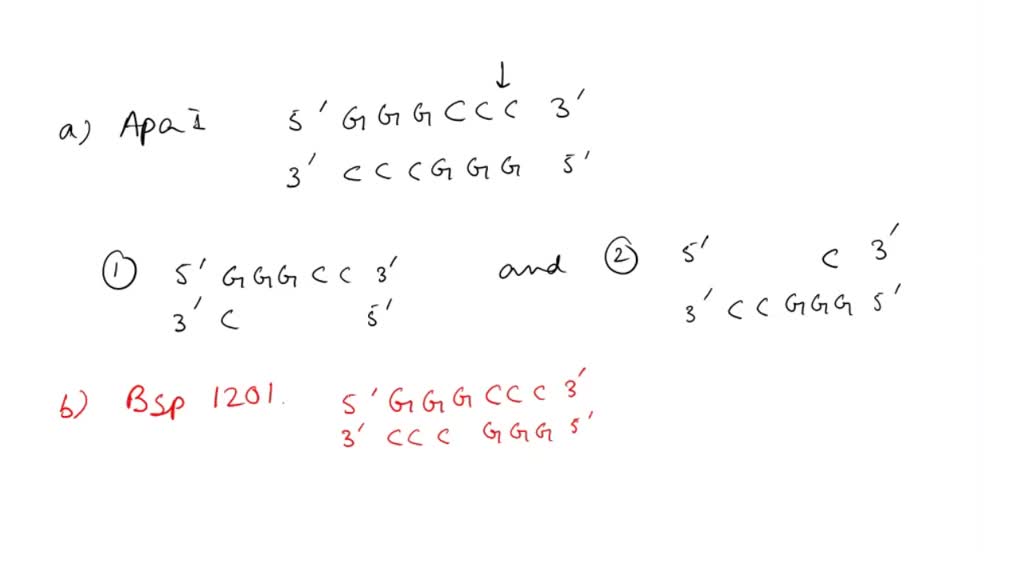 ↓
a) ApaI 5' GGGCCC 3'
3' CCCGGG 5'
① 5' GGGCC 3' and ② 5' C 3'
3' C 5' 3' CCGGG 5'
b) Bsp 1201. 5' GGGCCC 3'
3' CCC GGG 5'